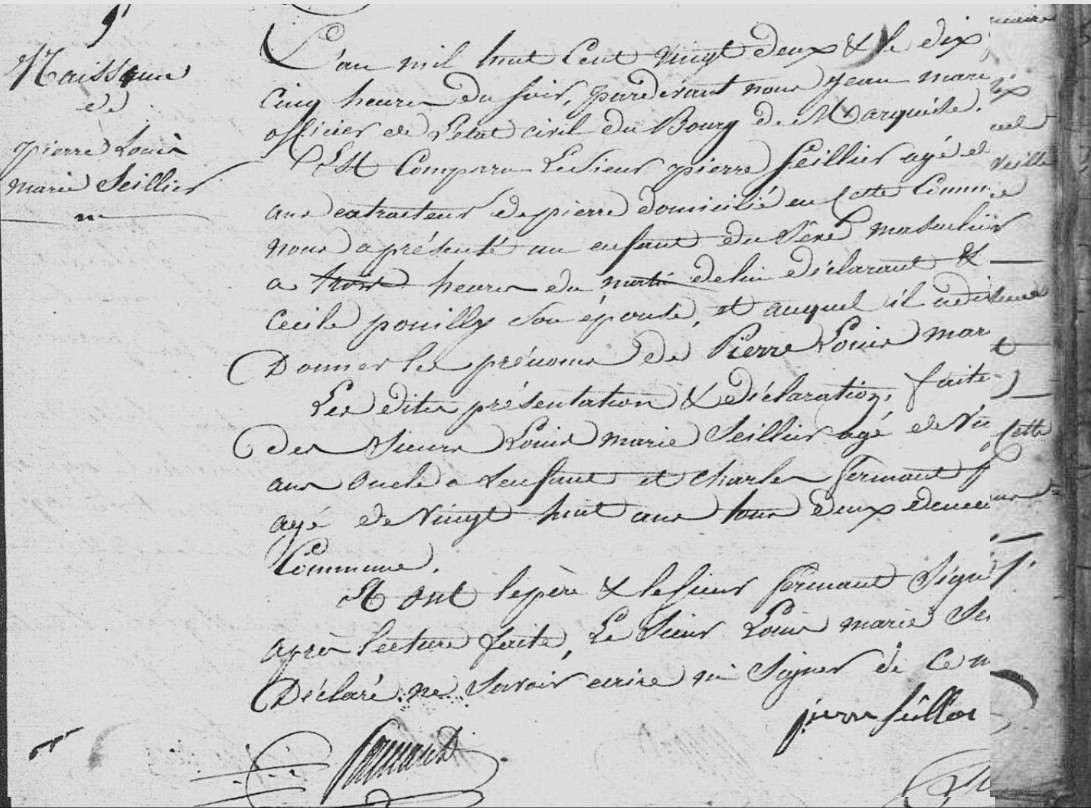 9
Naissance
de
pierre Louis
marie Seillier
L'an mil huit Cent vingt deux & le dix
cinq heures du soir, pardevant nous jean marie
officier de l'état civil du Bourg de Marquise.
Est Comparu Le Sieur pierre Seillier agé de
ans extracteur de pierre domicilié en Cette Comm
nous a présenté un enfant du Sexe masculin
a trois heures du matin de lui déclarant &
Cecile pouilly son épouse, et auquel il a dé
Donner les prénoms de Pierre Louis mar
Les dites présentation & déclaration, faite
Des Sieurs Louis marie Seillier agé de Vin
ans oncle a L'enfant et Charles fermant
agé de Vingt huit ans tous deux deme
Commune.
Et ont le père & le Sieur fermant Signé
après lecture faite, Le Sieur Louis marie Se
Déclaré ne savoir écrire ni Signer de Ce
pierre seillier
fermant